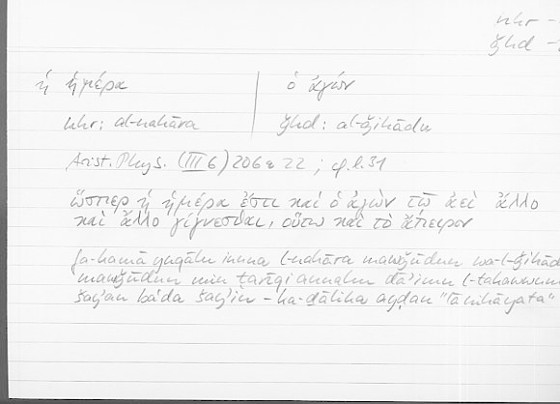 nhr -
ǧhd -
ἡ ἡμέρα | ὁ ἀγών
nhr: al-nahāra | ǧhd: al-ǧihādu
Arist. Phys. (III 6) 206a22; cf. l. 31
ὥσπερ ἡ ἡμέρα ἔστι καὶ ὁ ἀγὼν τῷ ἀεὶ ἄλλο
καὶ ἄλλο γίγνεσθαι, οὕτω καὶ τὸ ἄπειρον
fa-kamā yuqālu inna l-nahāra mawǧūdun wa-l-ǧihād
mawǧūdun min ṭarīqi annahu dāʾimu l-takawwun
šayʾan baʿda šayʾin – ka-ḏālika ayḍan "lā nihāyata"